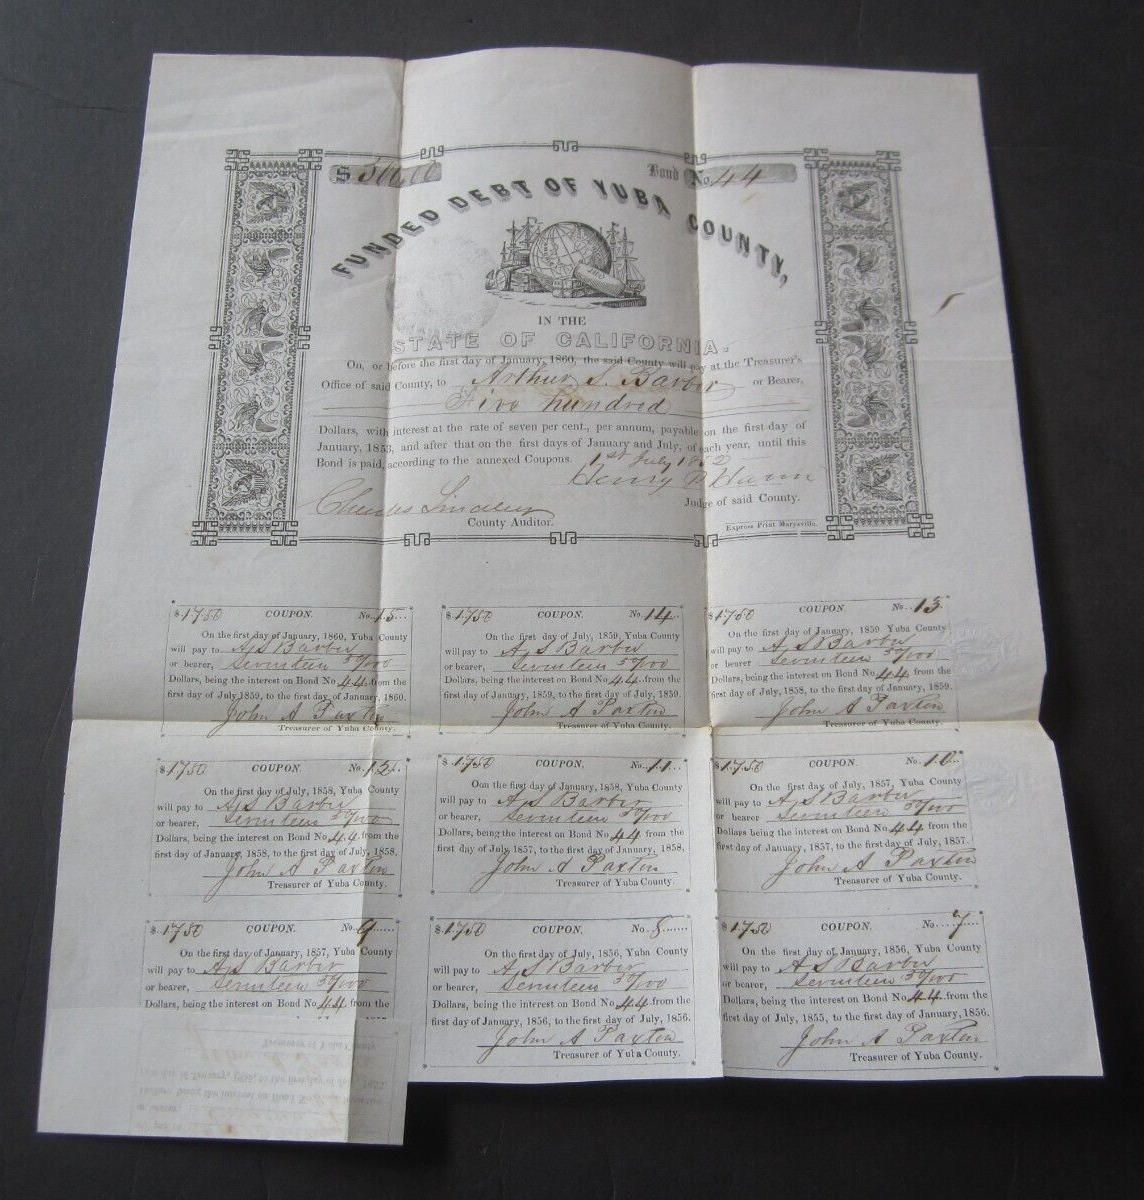 $ 500,00 Bond No. 44
FUNDED DEBT OF YUBA COUNTY,
IN THE
STATE OF CALIFORNIA.
On, or before the first day of January, 1860, the said County will pay at the Treasurer's
Office of said County, to Arthur S. Barber or Bearer,
Five hundred
Dollars, with interest at the rate of seven per cent., per annum, payable on the first day of
January, 1853, and after that on the first days of January and July, of each year, until this
Bond is paid, according to the annexed Coupons. 1st July 1852
Henry P Haun
Judge of said County.
Charles Lindley
County Auditor.
Express Print Marysville.
$ 17 50 COUPON. No. 15.
On the first day of January, 1860, Yuba County
will pay to A S Barber
or bearer, Seventeen 50/100
Dollars, being the interest on Bond No 44 from the
first day of July 1859, to the first day of January, 1860.
John A Paxton
Treasurer of Yuba County.
$ 17 50 COUPON. No. 14.
On the first day of July, 1859, Yuba County
will pay to A S Barber
or bearer, Seventeen 50/100
Dollars, being the interest on Bond No 44 from the
first day of January, 1859, to the first day of July, 1859.
John A Paxton
Treasurer of Yuba County.
$ 17 50 COUPON. No. 13
On the first day of January, 1859 Yuba County
will pay to A S Barber
or bearer Seventeen 50/100
Dollars, being the interest on Bond No 44 from the
first day of July, 1858, to the first day of January, 1859.
John A Paxton
Treasurer of Yuba County.
$ 17 50 COUPON. No. 12.
On the first day of July, 1858, Yuba County
will pay to A S Barber
or bearer, Seventeen 50/100
Dollars, being the interest on Bond No 44 from the
first day of January, 1858, to the first day of July, 1858.
John A Paxton
Treasurer of Yuba County.
$ 17 50 COUPON. No. 11...
On the first day of January, 1858, Yuba County
will pay to A S Barber
or bearer, Seventeen 50/100
Dollars, being the interest on Bond No 44 from the
first day of July, 1857, to the first day of January, 1858.
John A Paxton
Treasurer of Yuba County.
$ 17 50 COUPON. No. 10...
On the first day of July, 1857, Yuba County
will pay to A S Barber
or bearer, Seventeen 50/100
Dollars, being the interest on Bond No 44 from the
first day of January, 1857, to the first day of July, 1857.
John A Paxton
Treasurer of Yuba County.
$ 17 50 COUPON. No. 9......
On the first day of January, 1857, Yuba County
will pay to A S Barber
or bearer, Seventeen 50/100
Dollars, being the interest on Bond No 44 from the
$ 17 50 COUPON. No. 8.......
On the first day of July, 1856, Yuba County
will pay to A S Barber
or bearer, Seventeen 50/100
Dollars, being the interest on Bond No 44 from the
first day of January, 1856, to the first day of July, 1856.
John A Paxton
Treasurer of Yuba County.
$ 17 50 COUPON. No. 7......
On the first day of January, 1856, Yuba County
will pay to A S Barber
or bearer, Seventeen 50/100
Dollars, being the interest on Bond No 44 from the
first day of July, 1855, to the first day of January, 1856.
John A Paxton
Treasurer of Yuba County.